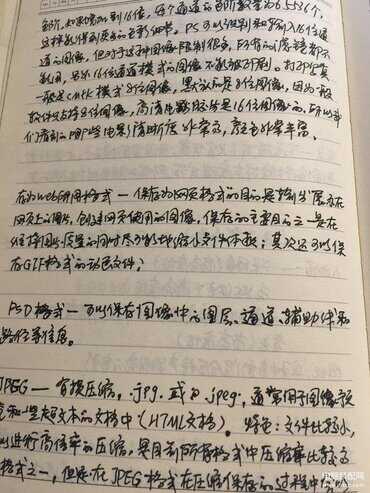 色阶,如果增加到16位,每个通道的色阶数量为65536个,
这样就能得到更多的色彩细节。PS可以识别和输入16位通
道的图像,但对于这种图像限制很多,所有的滤镜都不
能用,另外16位通道模式的图像不能被印刷。打印
一般是CMYK模式8位图像,默认的是8位图像,因为一般
软件只支持8位图像,高清电影应该是16位图像的,所以我
们看到的电影清晰度非常高,颜色非常丰富。
存为web所用格式一保存为网页格式的目的是输出展示在
网页上的图片,创建网页使用的图像,保存的主要目的之一是在
维持图片质量的同时尽可能地缩小文件体积;其次还可以保
存GIF格式的动态文件;
PSD格式一可以保存图像中的图层、通道、辅助线和
路径等信息。
JPEG一有损压缩,.jpg.或为.jpeg,通常用于图像预
览和一些超文本的文档中(HTML文档)。特色:文件比较小,
可以进行高倍率的压缩,是目前所有格式中压缩率最高的
格式之一,但是在JPEG格式在压缩保存的过程中